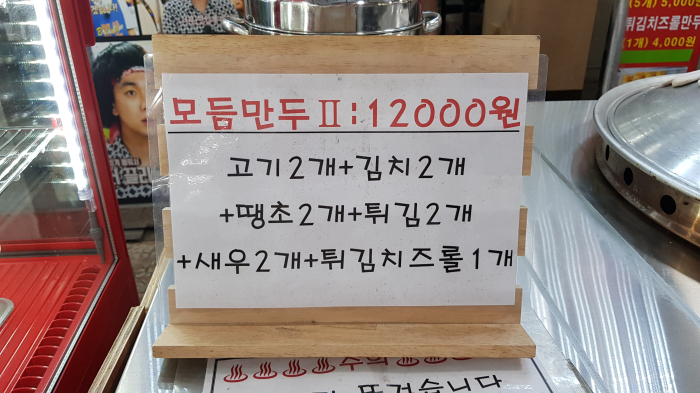 (5개) 5,000
튀김치즈롤만두
(1개) 4,000원
모듬만두Ⅱ:12000원
고기2개+김치2개
+땡초2개+튀김2개
+새우2개+튀김치즈롤1개
주의
뜨겁습니다